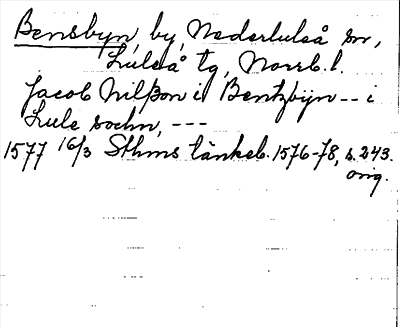 Bensbyn, by, Nederluleå sn,
Luleå tg, Norrb. l.
Jacob Nilßon i Bentzbÿn -- i
Lule sochn, ---
1577 16/3 Sthms tänkeb. 1576-78, s. 243.
orig.